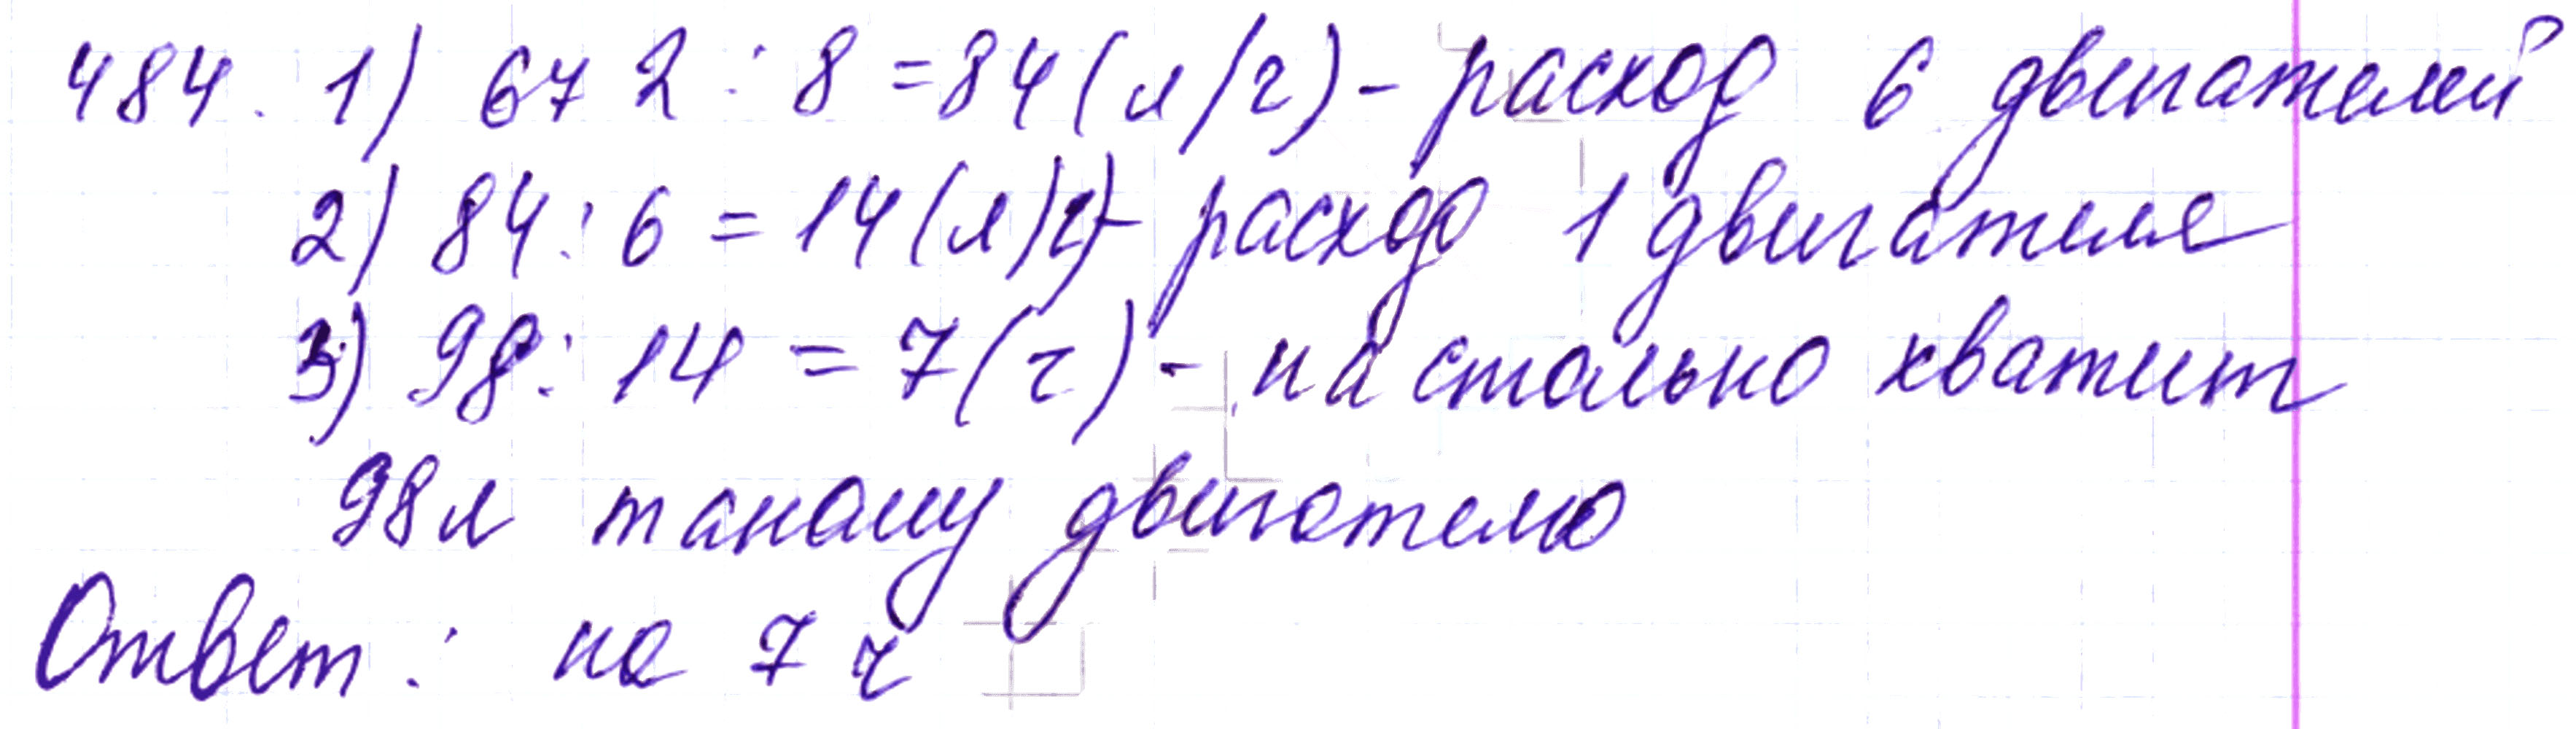 484. 1) 672 : 8 = 84 (л/ч) - расход 6 двигателей
2) 84 : 6 = 14 (л/ч) - расход 1 двигателя
3) 98 : 14 = 7 (ч) - на столько хватит
98 л такому двигателю
Ответ: на 7 ч